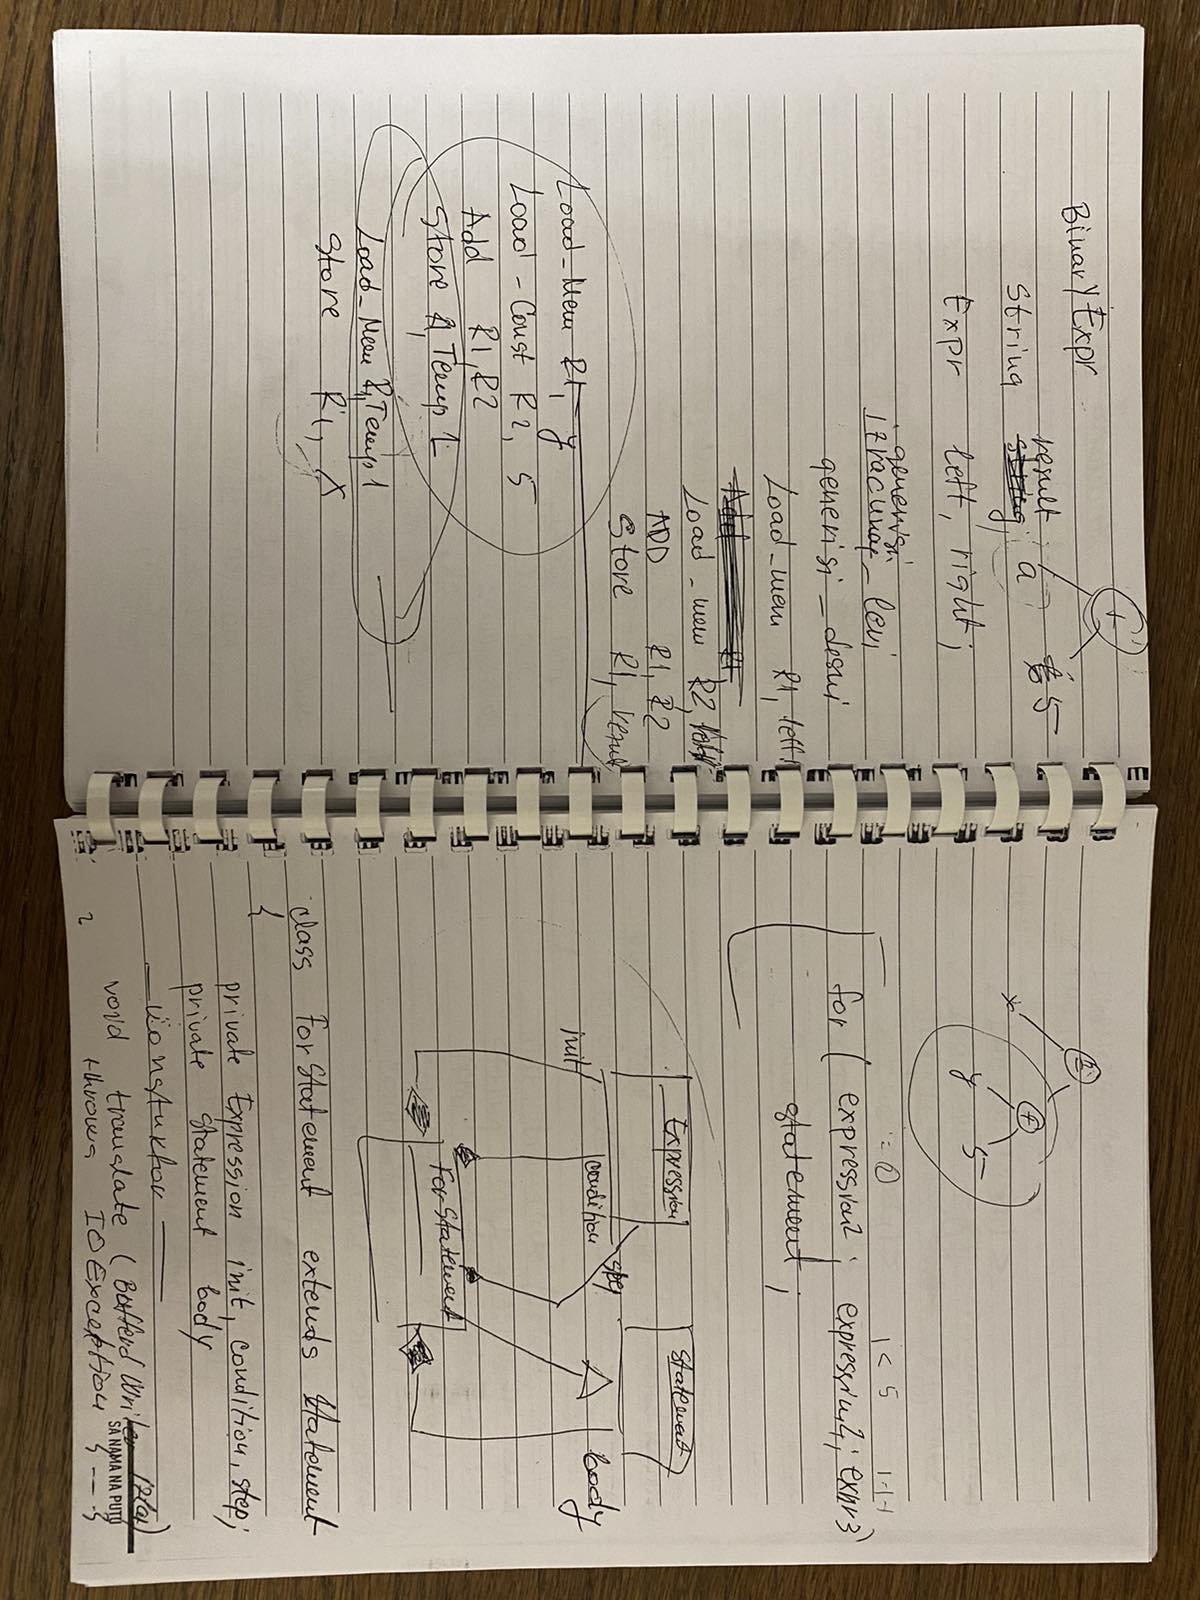 BinaryExpr
+
result
String a
5
Expr left, right;
generisi
izracunaj_levi
generisi_desni
Load_mem R1, left
Load_mem R2,
ADD R1, R2
Store R1, result
Load_Mem R1, y
Load-Const R2, 5
Add R1, R2
Store R1, Temp 1
Load_Mem R1, Temp 1
Store R1, X
=
x
+
y 5
i=0 i<5 i++
for ( expression1; expression2; expr3)
statement;
Expression
Statement
init condition step body
ForStatement
class ForStatement extends Statement
{
private Expression init, condition, step;
private Statement body
— konstuktor —
void translate ( Bufferd Writer izlaz)
throws IOException { --- }
SA NAMA NA PUTU